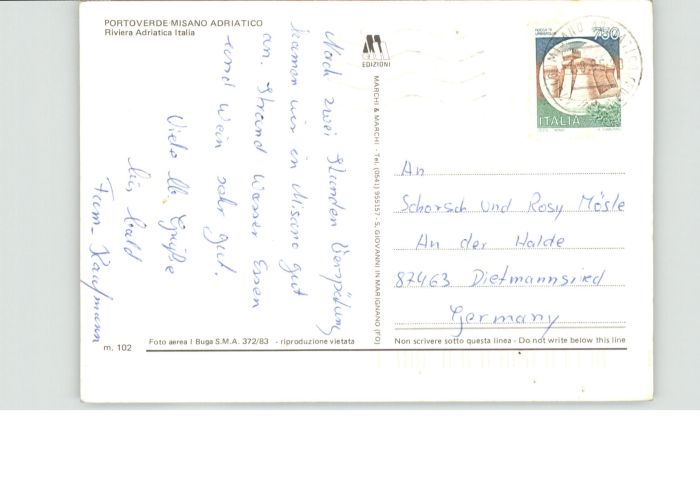 PORTOVERDE-MISANO ADRIATICO
Riviera Adriatica Italia
EDIZIONI
750
ITALIA
MARCHI & MARCHI - Tel. (0541) 955157 - S. GIOVANNI IN MARIGNANO (FO)
Nach zwei Stunden Verspätung
kamen wir in Misano gut
an. Strand Wasser Essen
und Wein sehr gut.
Viele lb. Grüße
Bis bald
Fam. Kaufmann
An
Schorsch und Rosy Mösle
An der Halde
87463 Dietmannsried
Germany
m. 102
Foto aerea I Buga S.M.A. 372/83 - riproduzione vietata
Non scrivere sotto questa linea - Do not write below this line